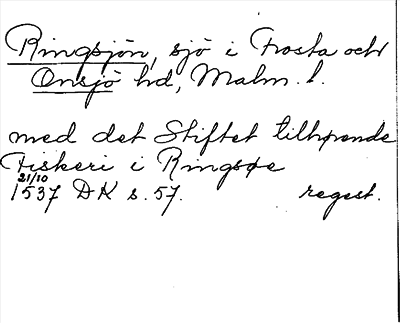 Ringsjön, sjö i Frosta och
Onsjö hd, Malm. l.
med det Stiftet tilhørende
Fiskeri i Ringsøe
21/10
1537 DK s. 57. regest.